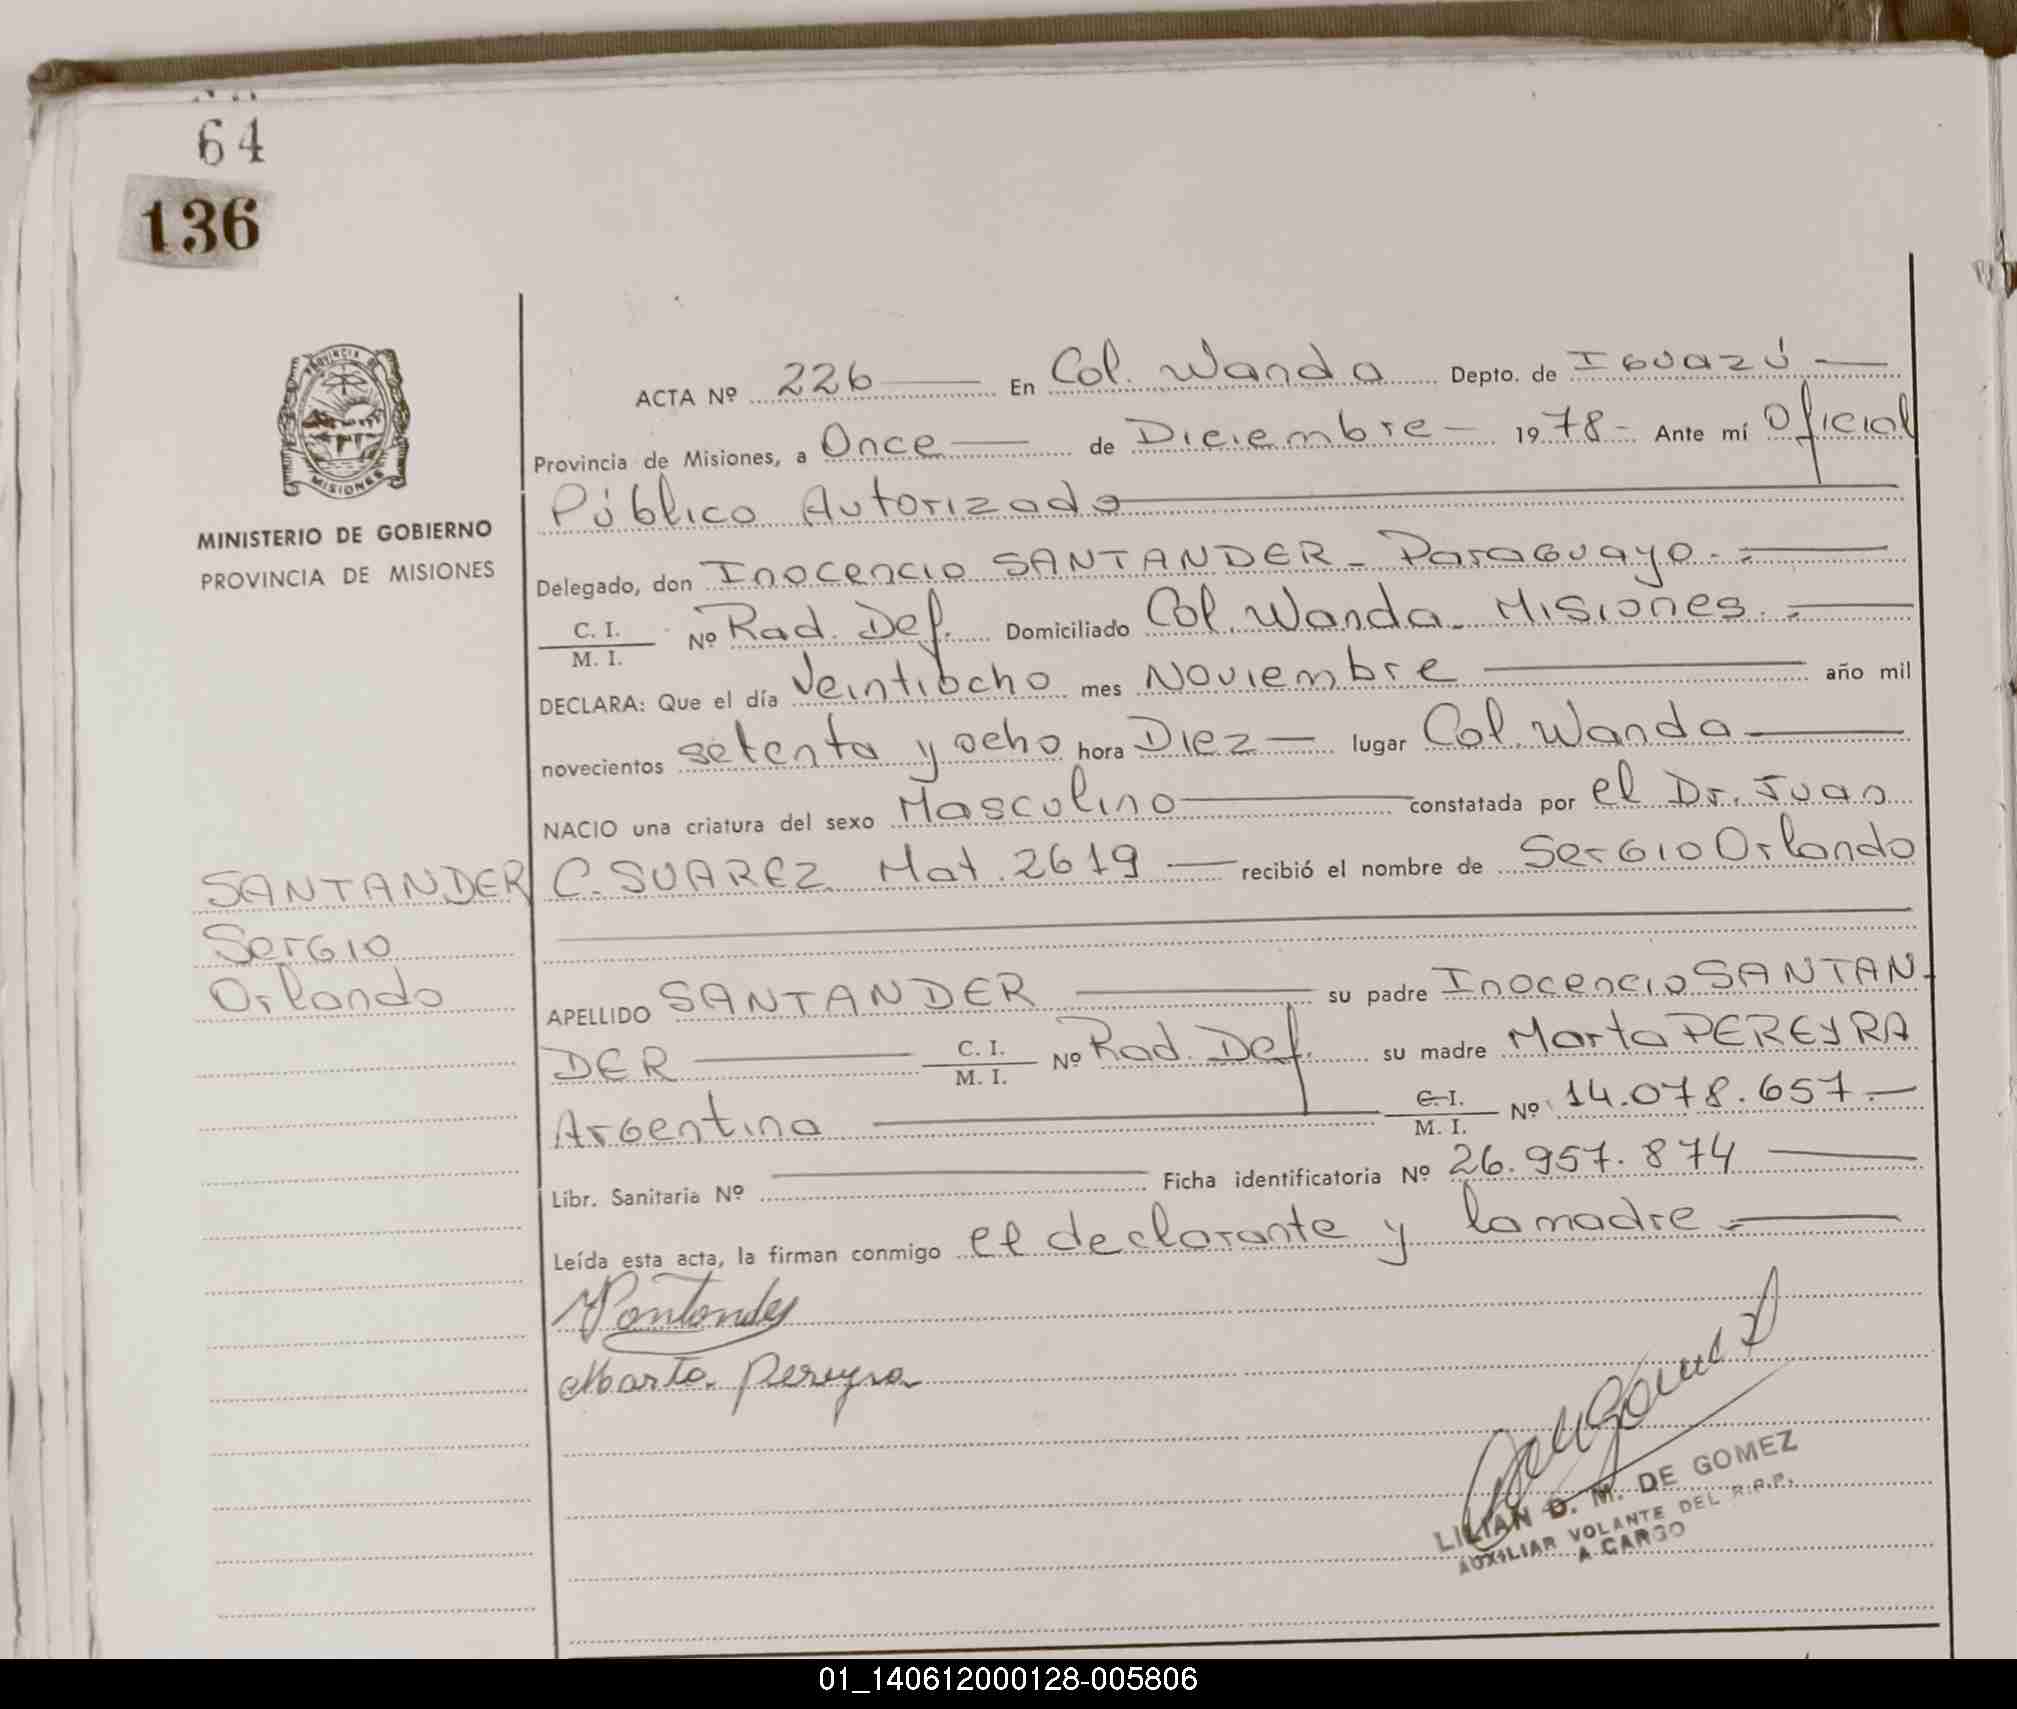 64
136
PROVINCIA DE
MISIONES
MINISTERIO DE GOBIERNO
PROVINCIA DE MISIONES
ACTA Nº 226 En Col. Wanda Depto. de Iguazú
Provincia de Misiones, a Once de Diciembre 1978- Ante mí Oficial
Público Autorizado
Delegado, don Inocencio SANTANDER - Paraguayo.-
C. I. / M. I. Nº Rad. Def. Domiciliado Col. Wanda - Misiones.-
DECLARA: Que el día Veintiocho mes Noviembre año mil
novecientos setenta y ocho hora Diez lugar Col. Wanda
NACIO una criatura del sexo Masculino constatada por el Dr. Juan
C. SUAREZ Mat. 2619 recibió el nombre de Sergio Orlando
SANTANDER
Sergio
Orlando
APELLIDO SANTANDER su padre Inocencio SANTAN-
DER C. I. / M. I. Nº Rad. Def. su madre Marta PEREYRA
Argentina C. I. / M. I. Nº 14.078.657.-
Libr. Sanitaria Nº Ficha identificatoria Nº 26.957.874
Leída esta acta, la firman conmigo el declarante y la madre.-
Santander
Marta Pereyra
LILIAN D. M. DE GOMEZ
AUXILIAR VOLANTE DEL R.P.P.
A CARGO
01_140612000128-005806